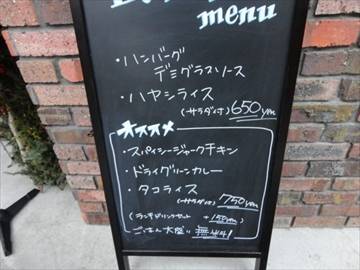 menu
・ハンバーグ
デミグラスソース
・ハヤシライス
(サラダ付) 650yen
オススメ
・スパイシージャークチキン
・ドライグリーンカレー
・タコライス
(サラダ付) 750yen
(ランチドリンクセット +150yen)
・ごはん大盛り 無料!